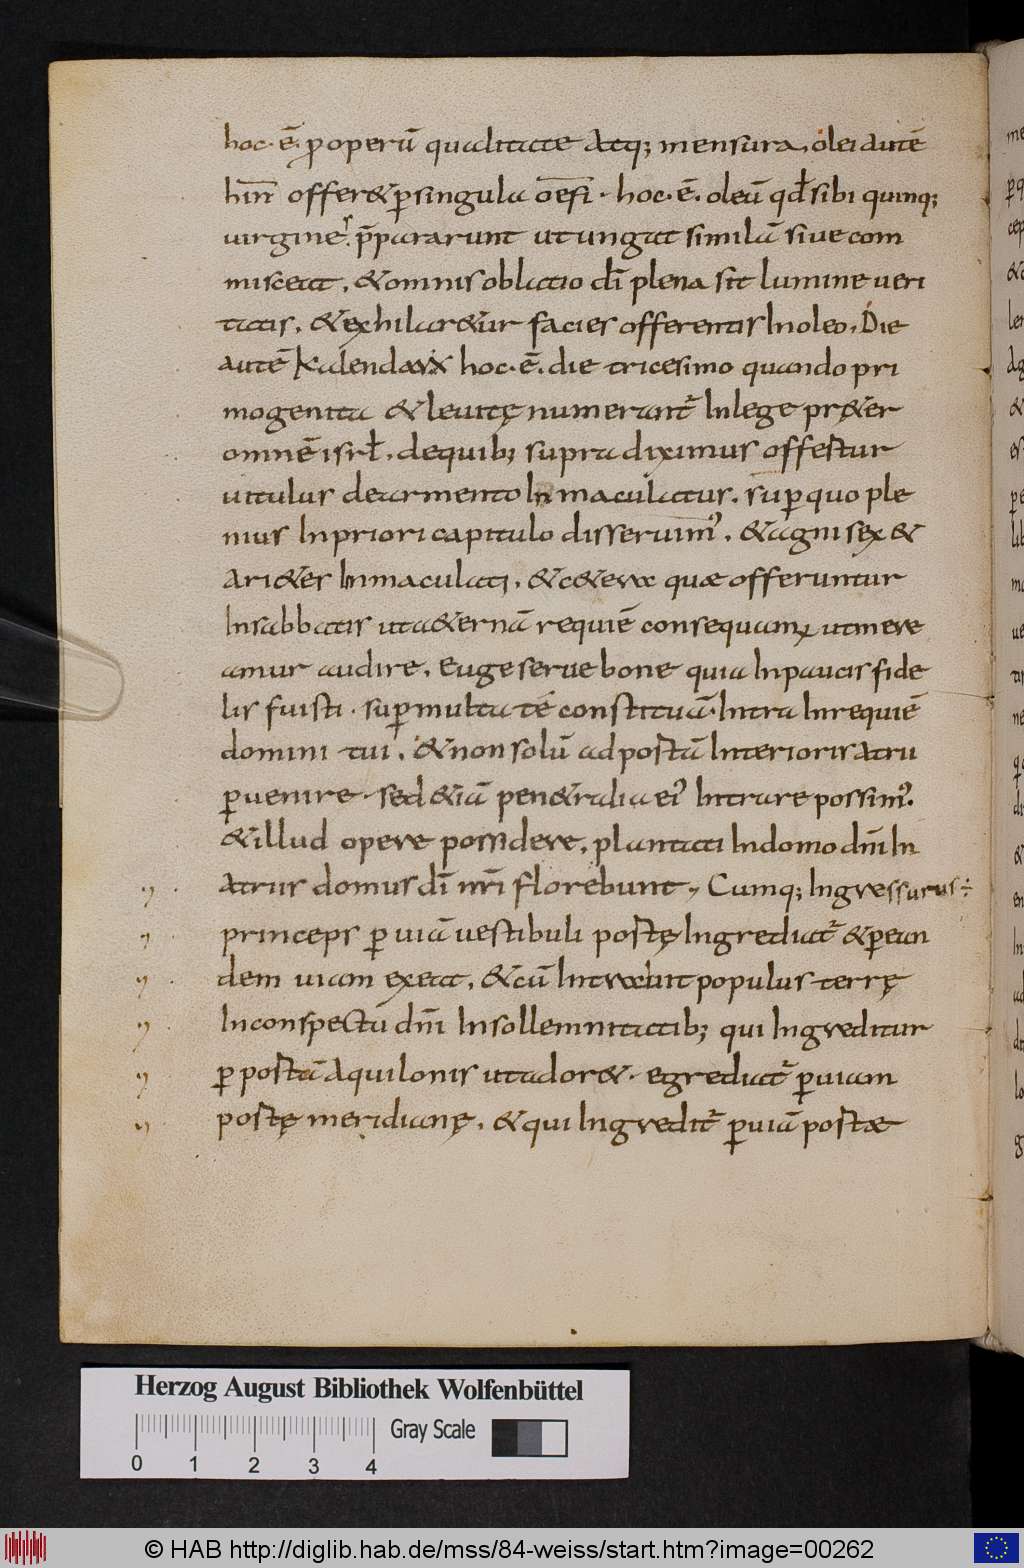 hoc·ē· ꝓ operū qualitate atq; mensura, olei autē
hin̄ offer& ꝑ singula oefi · hoc·ē· oleū qđ sibi quinq;
virgines p̄pararunt ut ungat similā sive com
misceat, & omnis oblatio dī plena sit lumine veri
tatis, & exhilar&ur facies offerentis In oleo, Die
autē kalendarū hoc·ē· die tricesimo quando pri
mogenita & levitę numerant᷑ In lege pręt&er
omnē isrł, de quib; supra diximus offertur
vitulus de armento In maculatus, sup quo ple
nius In priori capitulo disseruim᾽, & agni sex &
ari&er Inmaculati, & c&era quæ offeruntur
In sabbatis ut a&ernā requiē consequamur ut mere
amur audire, Euge serve bone quia In paucis fide
lis fuisti · suꝑ multa tē constituā · Intra In requiē
domini tui, & non solū ad portā Interioris atrii
ꝑvenire · sed &iā pen&ralia ei᾽ Intrare possim᾽·
& illud opere possidere, plantati In domo dn̄i In
atriis domus dī nr̄i florebunt, Cumq; Ingressurus ÷
princeps ꝑ viā vestibuli portę Ingrediat᷑ & ꝑ ean
dem viam exeat, & cū Intrabit populus terrę
In conspectū dn̄i In sollemnitatib; qui Ingreditur
ꝑ portā Aquilonis ut ador& · egrediat᷑ ꝑ viam
portę meridianę, & qui Ingredit᷑ ꝑ viā portæ
Herzog August Bibliothek Wolfenbüttel
Gray Scale
0 1 2 3 4
© HAB http://diglib.hab.de/mss/84-weiss/start.htm?image=00262